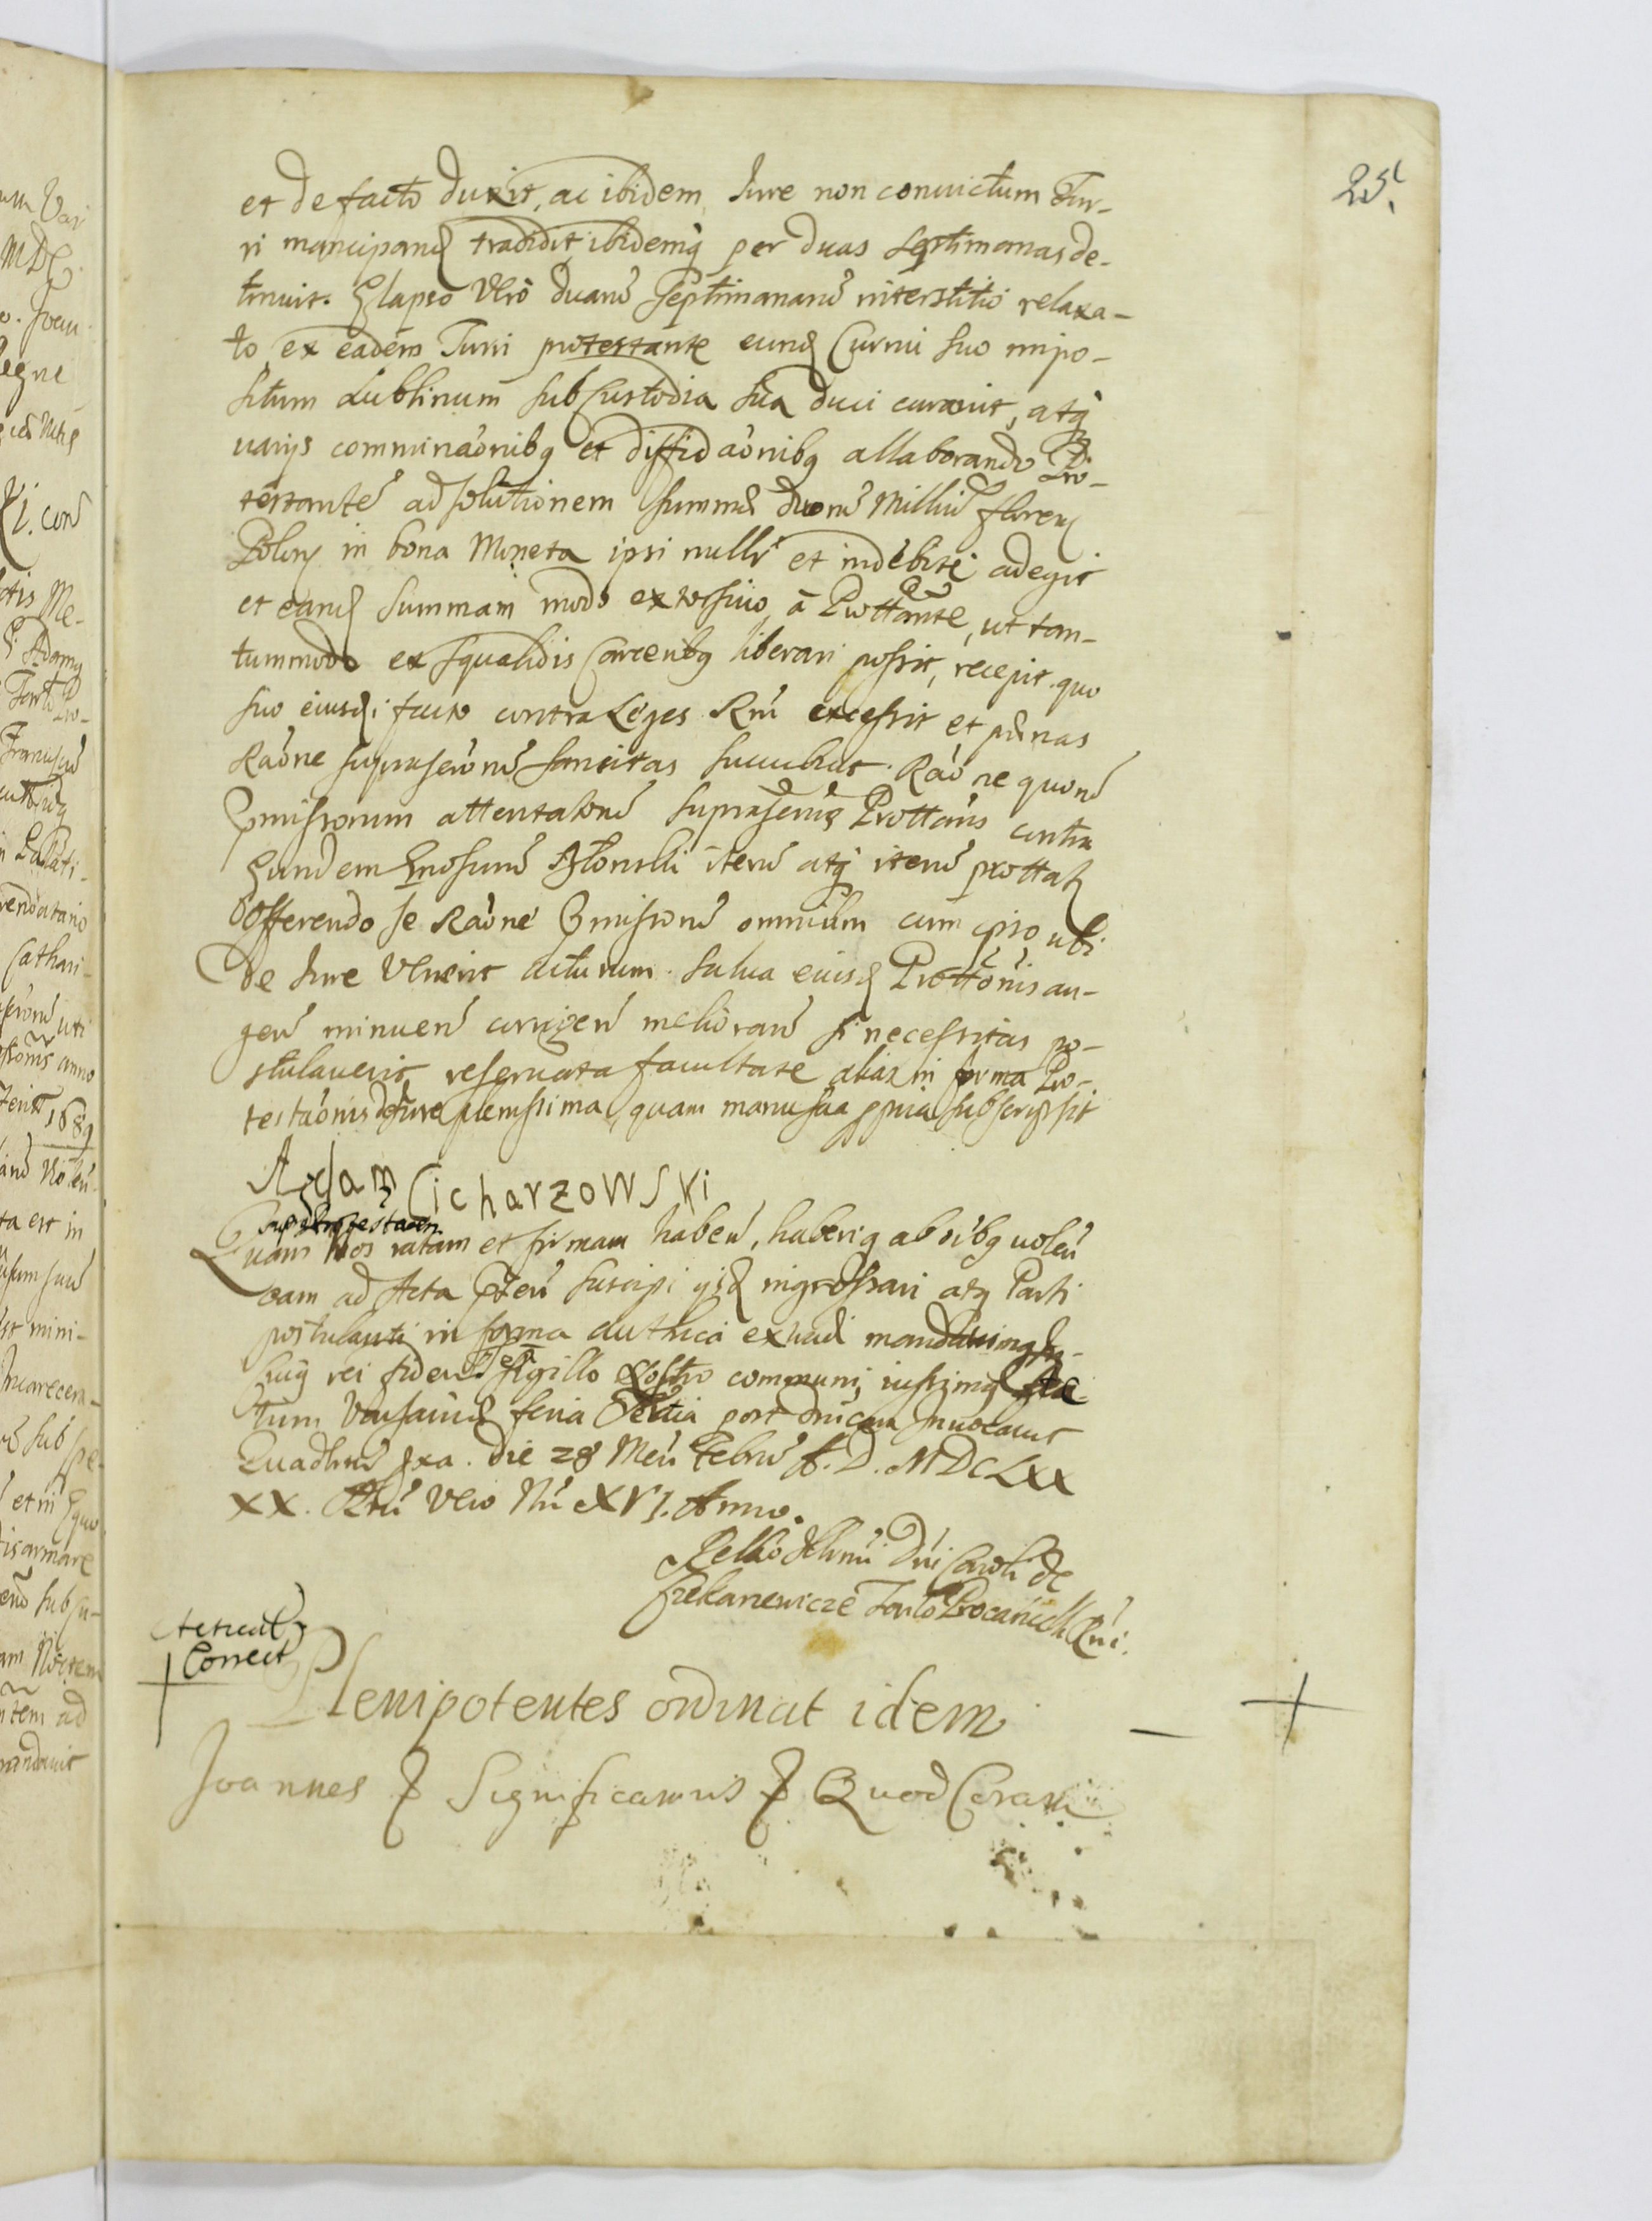 25.
et de facto duxit, ac ibidem Iure non convictum Tur-
ri mancipand tradidit, ibidemq per duas septimanas de-
tinuit. Elapso vero duarū septimanarū interstitio relaxa-
to ex eadem Turri protestante eund Currui suo impo-
situm Lublinum sub custodia sua duci curavit, atq
varijs comminaōnibq et diffidaōnibq allaborando Pro-
testantē ad solutionem summæ duorū Milliū floren
Polon in bona Moneta ipsi nullr et indebite adegit
et eand summam modo extorsivo à Prottante, ut tan-
tummodo ex squalidis Carceribq liberari possit, recepit. quo
suo eiusdi facto contra Leges Rni excessit et pœnas
Raōne suprascrorū sancitas succubuit. Raōne quorū
Præmissorum attentatorū suprascrip Prottans contra
Eundem Gnosum iterū atq iterū prottatr
Offerendo se Raōne Præmissorū omnium cum ipso ubi
de Iure venerit acturum. salva eiusd Prottōnis au-
gen minuen corrigen melioran si necessitas po-
stulaverit, reservata facultate alias in forma Pro-
testaōnis de Iure plenissima, quam manu sua ppria subscripsit
Adam Cicharzowski
Quam Nos ratam et firmam haben, haberiq ab oibq volen
eam ad Acta Præsen suscipi ijsd ingrossari atq Parti
postulanti in forma authca extradi mandavimq. In
cuiq rei fidem sigillo Nostro communi, iussimq
tum Varsaviæ feria Tertia post Dnicam Invocavit
Quadlem pxa. die 28 Men Febru A. D. MDCLXX
XX. Rni vero Nri XVI. Anno.
Relāo Illrmi Dni Caroli de
Procancell Rni.
Correct
Plenipotentes ordinat idem
Joannes & Significamus & Quod Coram